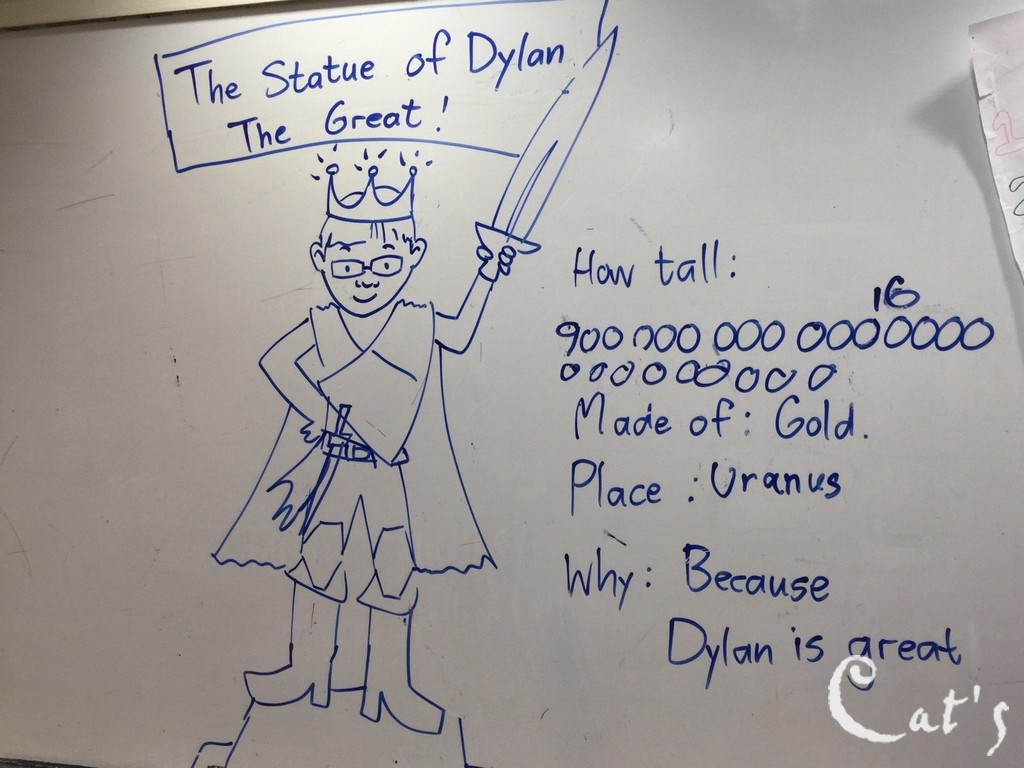 The Statue of Dylan
The Great!
How tall:
16
900 000 000 00000000
0000000000
Made of: Gold.
Place : Uranus
Why: Because
Dylan is great
Cat's